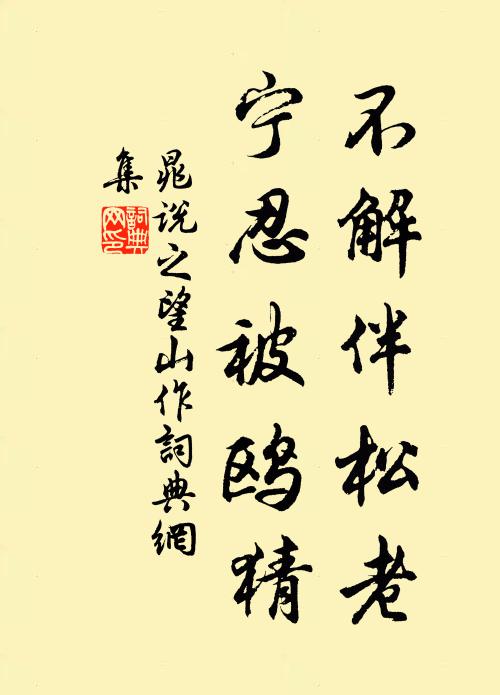 不解伴松老
宁忍被鸥猜
晁说之望山作詞典網
集
詞典網印